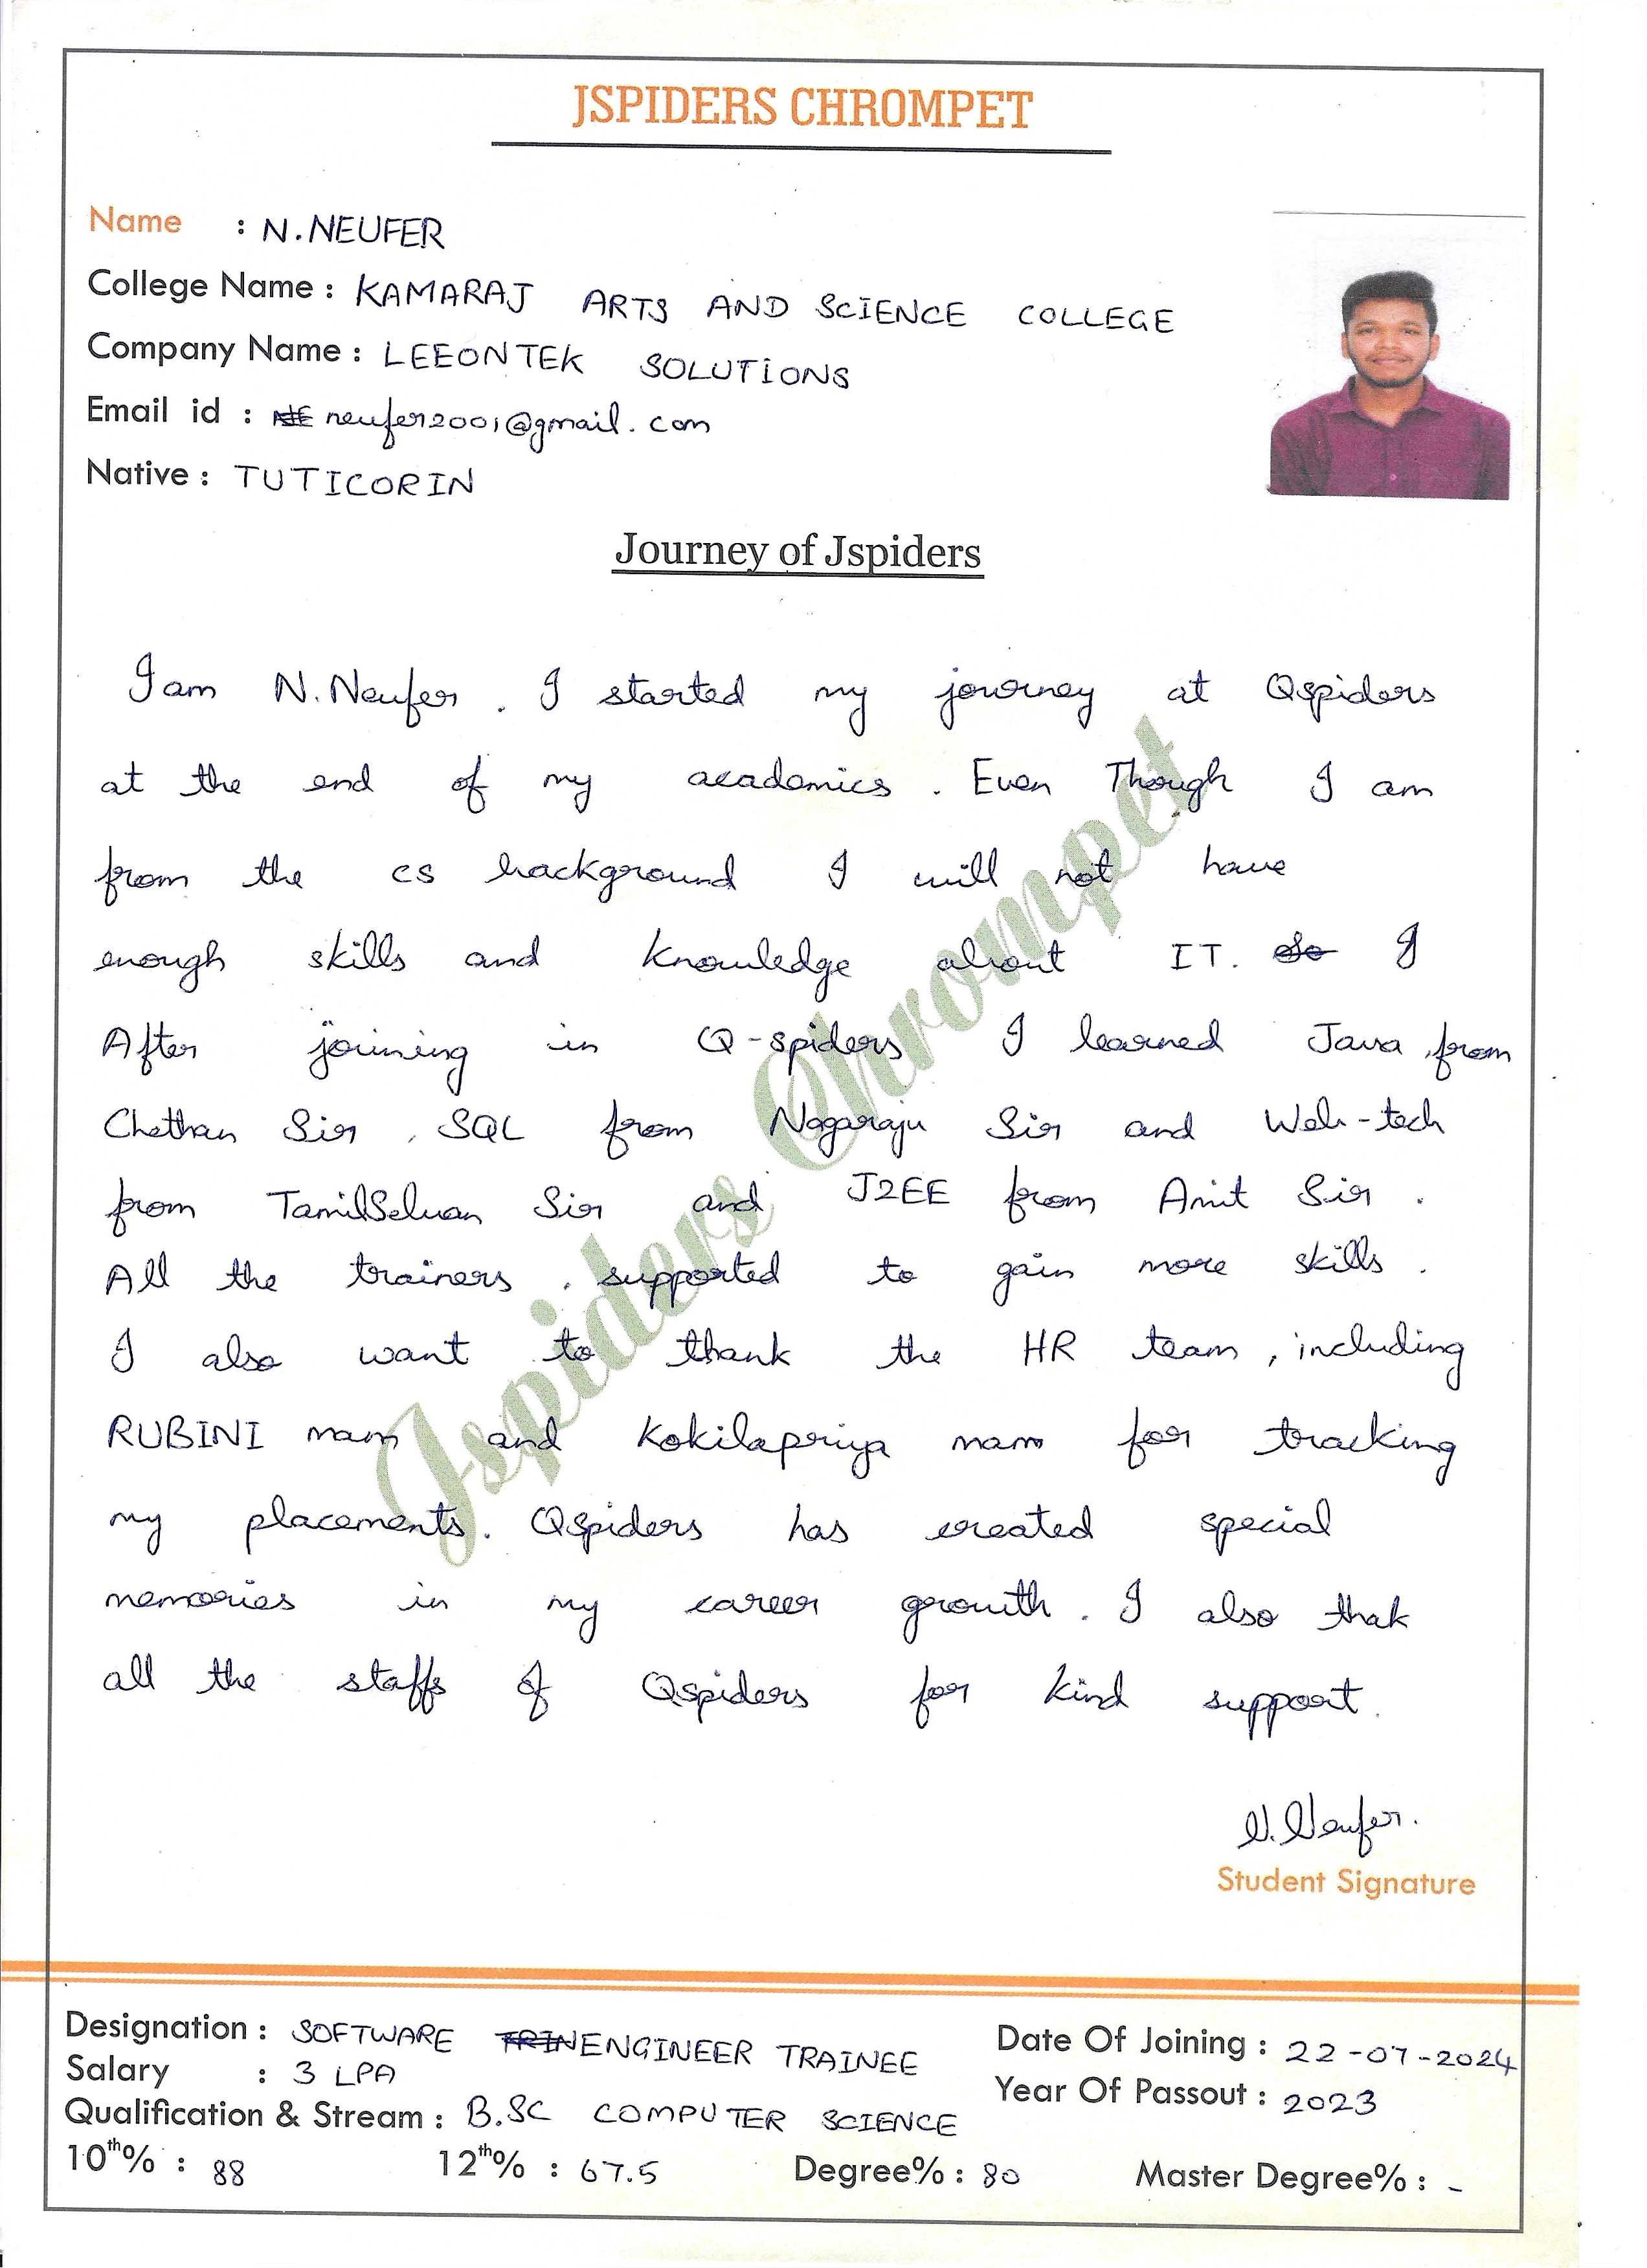 JSPIDERS CHROMPET
Name : N.NEUFER
College Name : KAMARAJ ARTS AND SCIENCE COLLEGE
Company Name : LEEONTEK SOLUTIONS
Email id : neufer2001@gmail.com
Native : TUTICORIN
Journey of Jspiders
I am N.Neufer. I started my journey at Qspiders
at the end of my academics. Even Though I am
from the cs background I will not have
enough skills and knowledge about IT. So I
After joining in Q-spiders I learned Java from
Chethan Sir, SQL from Nagaraju Sir and Web-tech
from TamilSelvan Sir and J2EE from Amit Sir.
All the trainers, supported to gain more skills.
I also want to thank the HR team, including
RUBINI mam and Kokilapriya mam for tracking
my placements. Qspiders has created special
memories in my career growth. I also thak
all the staffs of Qspiders for kind support.
Jspiders Chrompet
N.Neufer.
Student Signature
Designation : SOFTWARE ENGINEER TRAINEE
Date Of Joining : 22-07-2024
Salary : 3 LPA
Year Of Passout : 2023
Qualification & Stream : B.SC COMPUTER SCIENCE
10th% : 88 12th% : 67.5 Degree% : 80 Master Degree% : -